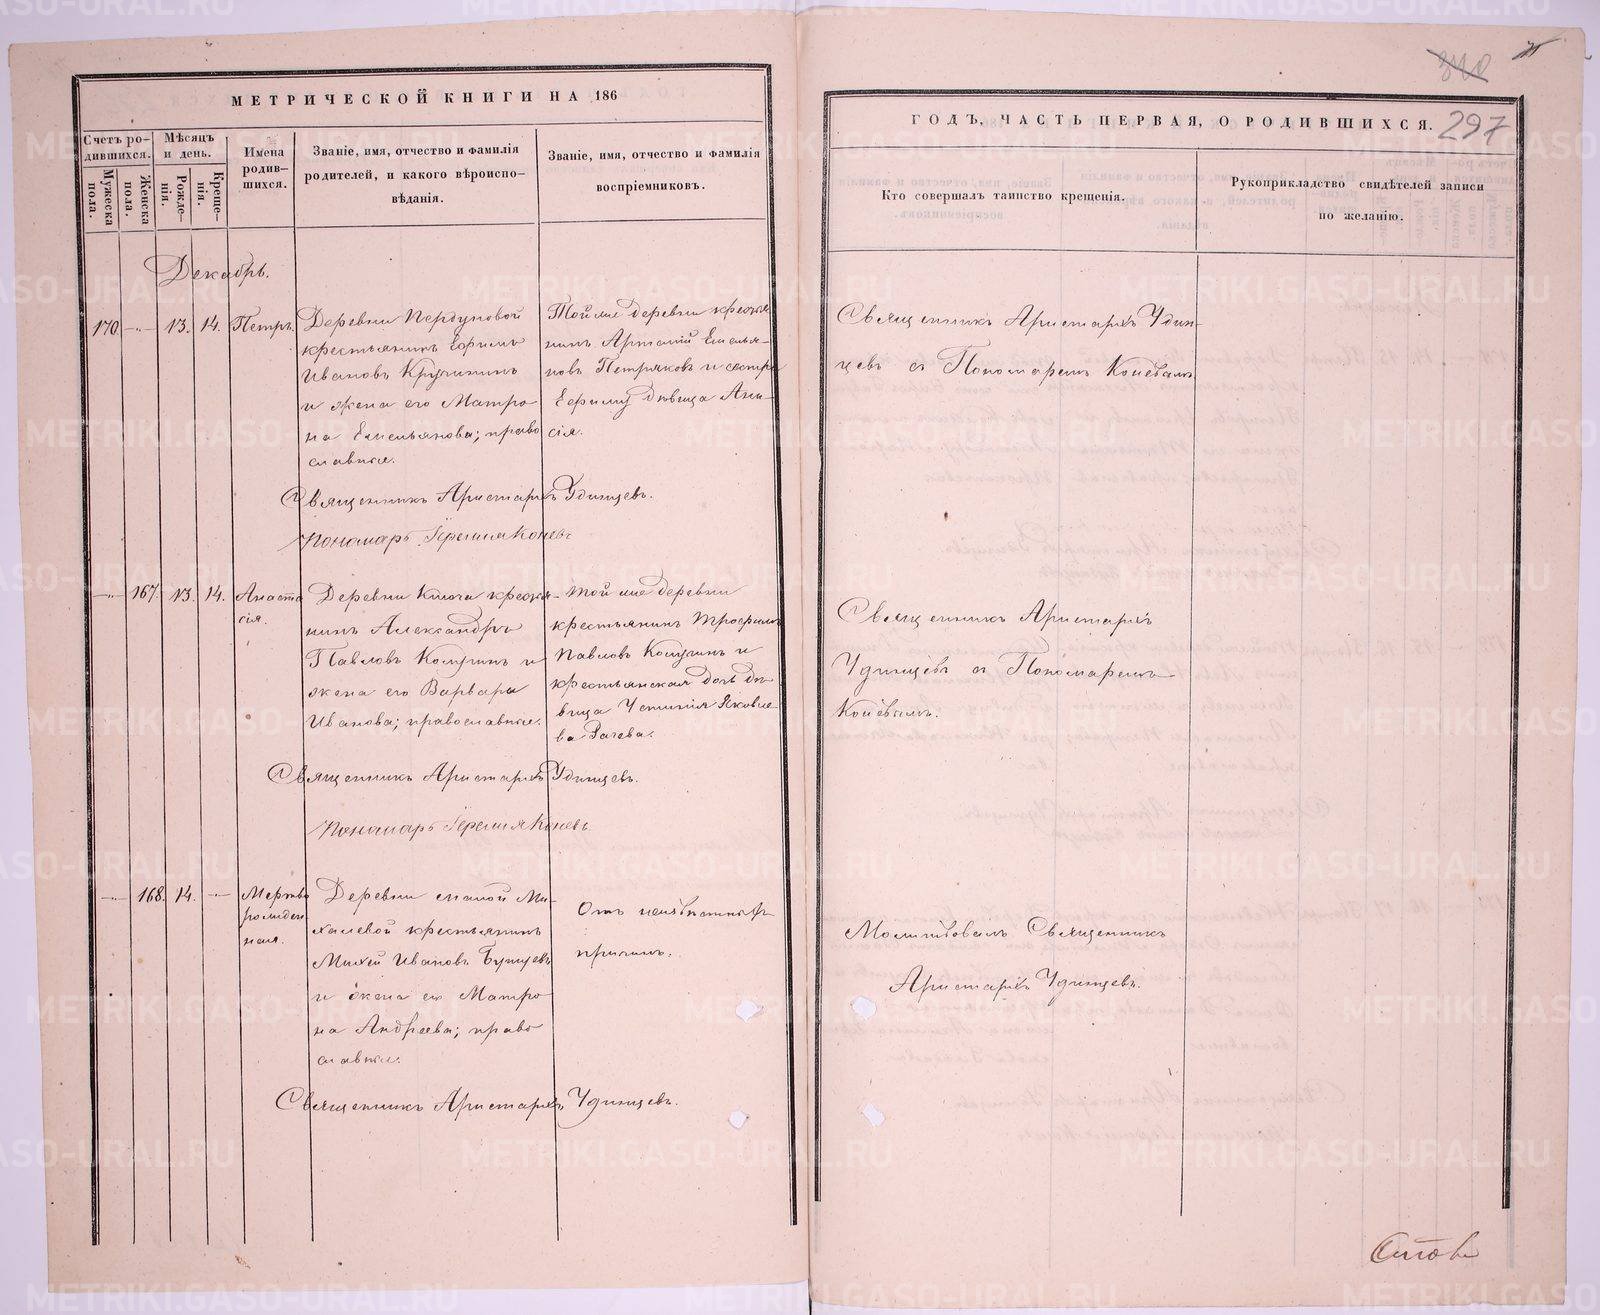 МЕТРИЧЕСКОЙ КНИГИ НА 186
Счетъ ро-
дившихся.
Мужеска
пола.
Женска
пола.
Мѣсяцъ
и день.
Рожде-
нія.
Креще-
нія.
Имена
родив-
шихся.
Званіе, имя, отчество и фамилія
родителей, и какого вѣроиспо-
вѣданія.
Званіе, имя, отчество и фамилія
воспріемниковъ.
Декабрь.
170 —"— 13. 14. Петръ.
Деревни
крестьянинъ Ефимъ
Ивановъ Кручининъ
и жена его Матро
на Емельянова; право
славные.
Той же деревни крестья
нинъ Артемій Емелья-
новъ Петряковъ и сестра
Ефиму дѣвица Ани-
сія.
Священникъ Аристархъ Удинцевъ.
Пономарь Іеремія Коневъ
—"— 167. 13. 14. Анаста
сія.
Деревни Ключи крестья-
нинъ Александръ
Павловъ Комугинъ и
жена его Варвара
Иванова; православные.
Той же деревни
крестьянинъ Трофимъ
Павловъ Комугинъ и
крестьянская дочь дѣ
вица Устинія Яковле-
ва Рачева.
Священникъ Аристархъ Удинцевъ.
Пономарь Іеремія Коневъ
—"— 168. 14. —"— Мертво
рожден
ная.
Деревни малой Ми-
халевой крестьянинъ
Михей Ивановъ
и жена его Матро
на Андреева; право
славные.
Отъ неизвѣстныхъ
причинъ.
Священникъ Аристархъ Удинцевъ.
340
297
ГОДЪ, ЧАСТЬ ПЕРВАЯ, О РОДИВШИХСЯ.
Кто совершалъ таинство крещенія.
Рукоприкладство свидѣтелей записи
по желанію.
Священникъ Аристархъ Удин-
цевъ съ Пономаремъ Коневымъ
Священникъ Аристархъ
Удинцевъ съ Пономаремъ
Коневымъ.
Молитвовалъ Священникъ
Аристархъ Удинцевъ.
METRIKI.GASO-URAL.RU